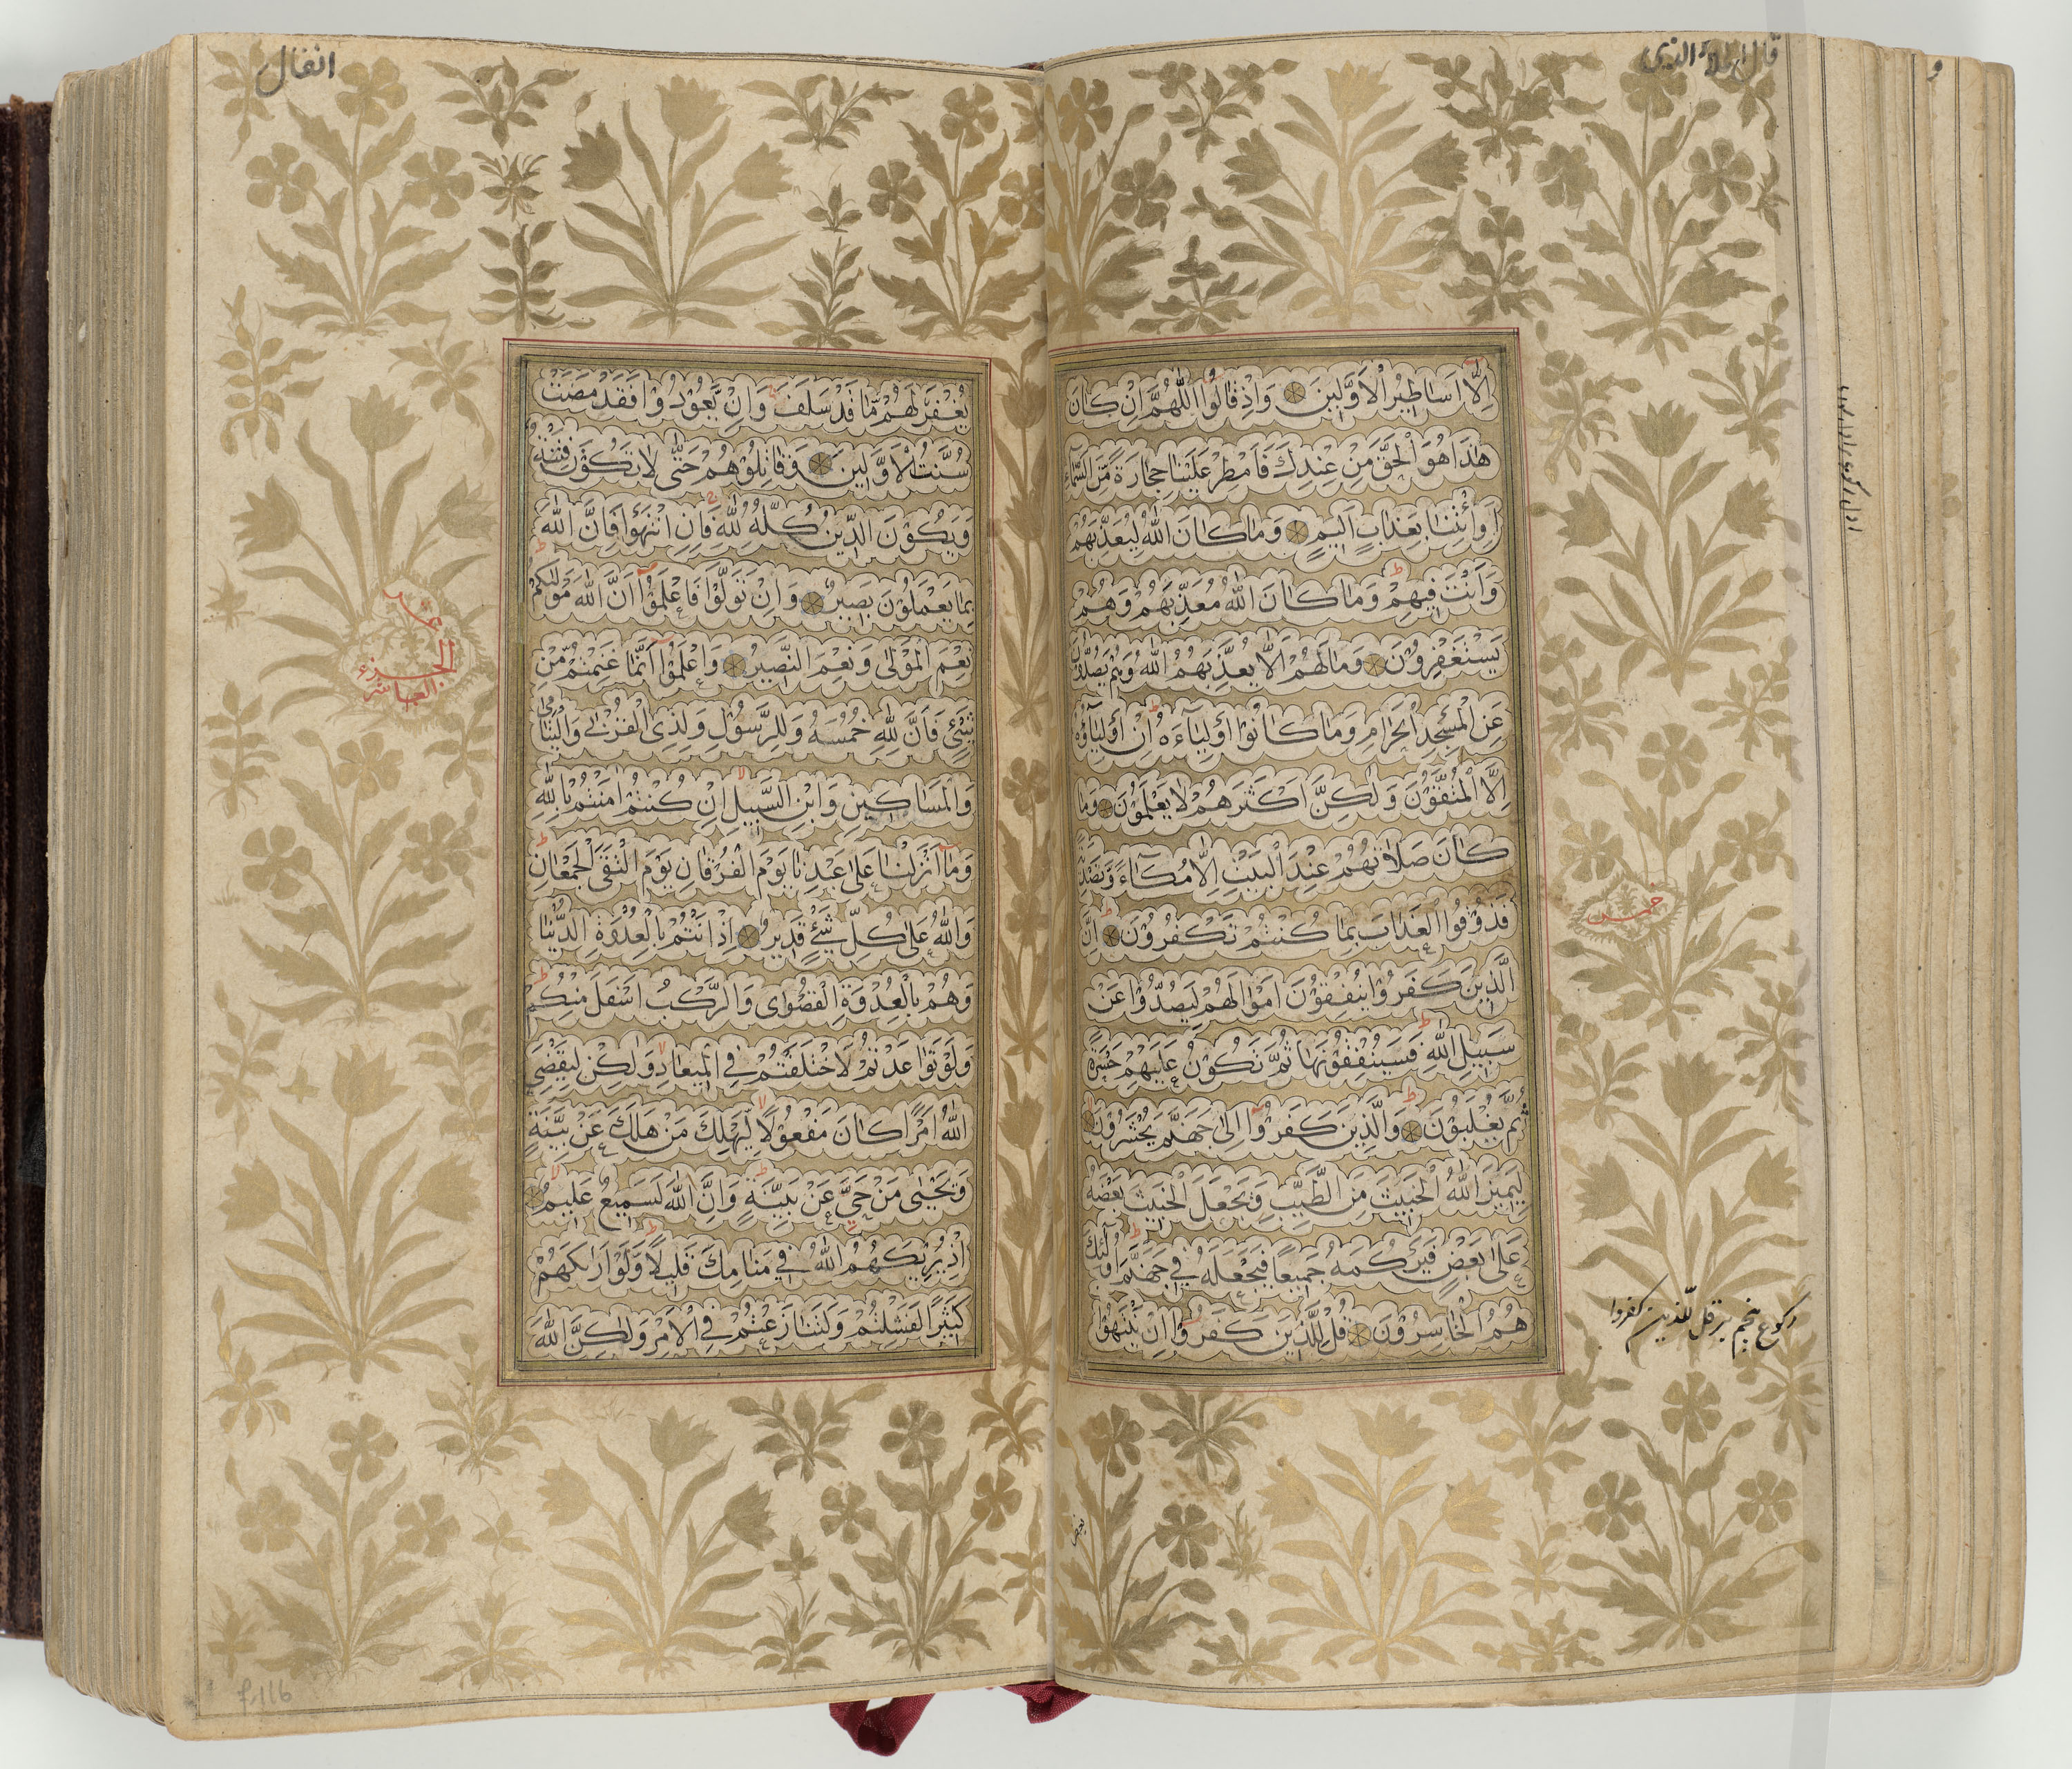 قال الملأ الذين
إِلَّا اَسَاطِيرُ الْاَوَّلِينَ وَاِذْ قَالُوا اللّٰهُمَّ اِنْ كَانَ
هٰذَا هُوَ الْحَقَّ مِنْ عِنْدِكَ فَاَمْطِرْ عَلَيْنَا حِجَارَةً مِّنَ السَّمَاءِ
اَوِ ائْتِنَا بِعَذَابٍ اَلِيمٍ وَمَا كَانَ اللّٰهُ لِيُعَذِّبَهُمْ
وَاَنْتَ فِيهِمْ وَمَا كَانَ اللّٰهُ مُعَذِّبَهُمْ وَهُمْ
يَسْتَغْفِرُونَ وَمَا لَهُمْ اَلَّا يُعَذِّبَهُمُ اللّٰهُ وَهُمْ يَصُدُّونَ
عَنِ الْمَسْجِدِ الْحَرَامِ وَمَا كَانُوْا اَوْلِيَآءَهُ اِنْ اَوْلِيَآؤُهُ
اِلَّا الْمُتَّقُوْنَ وَلٰكِنَّ اَكْثَرَهُمْ لَا يَعْلَمُوْنَ وَمَا
كَانَ صَلَاتُهُمْ عِنْدَ الْبَيْتِ اِلَّا مُكَآءً وَّتَصْدِيَةً
فَذُوْقُوا الْعَذَابَ بِمَا كُنْتُمْ تَكْفُرُوْنَ اِنَّ
الَّذِيْنَ كَفَرُوْا يُنْفِقُوْنَ اَمْوَالَهُمْ لِيَصُدُّوْا عَنْ
سَبِيْلِ اللّٰهِ فَسَيُنْفِقُوْنَهَا ثُمَّ تَكُوْنُ عَلَيْهِمْ حَسْرَةً
ثُمَّ يُغْلَبُوْنَ وَالَّذِيْنَ كَفَرُوْٓا اِلٰى جَهَنَّمَ يُحْشَرُوْنَ
لِيَمِيْزَ اللّٰهُ الْخَبِيْثَ مِنَ الطَّيِّبِ وَيَجْعَلَ الْخَبِيْثَ بَعْضَهُ
عَلٰى بَعْضٍ فَيَرْكُمَهُ جَمِيْعًا فَيَجْعَلَهُ فِيْ جَهَنَّمَ اُولٰٓئِكَ
هُمُ الْخَاسِرُوْنَ قُلْ لِلَّذِيْنَ كَفَرُوْٓا اِنْ يَنْتَهُوْا
خمس
ركوع پنجم بر قل للذين كفروا
يغفر
انفال
يُغْفَرْ لَهُمْ مَّا قَدْ سَلَفَ وَاِنْ يَّعُوْدُوْا فَقَدْ مَضَتْ
سُنَّتُ الْاَوَّلِيْنَ وَقَاتِلُوْهُمْ حَتّٰى لَا تَكُوْنَ فِتْنَةٌ
وَيَكُوْنَ الدِّيْنُ كُلُّهُ لِلّٰهِ فَاِنِ انْتَهَوْا فَاِنَّ اللّٰهَ
بِمَا يَعْمَلُوْنَ بَصِيْرٌ وَاِنْ تَوَلَّوْا فَاعْلَمُوْٓا اَنَّ اللّٰهَ مَوْلٰىكُمْ
نِعْمَ الْمَوْلٰى وَنِعْمَ النَّصِيْرُ وَاعْلَمُوْٓا اَنَّمَا غَنِمْتُمْ مِّنْ
شَيْءٍ فَاَنَّ لِلّٰهِ خُمُسَهُ وَلِلرَّسُوْلِ وَلِذِي الْقُرْبٰى وَالْيَتَامٰى
وَالْمَسَاكِيْنِ وَابْنِ السَّبِيْلِ اِنْ كُنْتُمْ اٰمَنْتُمْ بِاللّٰهِ
وَمَآ اَنْزَلْنَا عَلٰى عَبْدِنَا يَوْمَ الْفُرْقَانِ يَوْمَ الْتَقَى الْجَمْعَانِ
وَاللّٰهُ عَلٰى كُلِّ شَيْءٍ قَدِيْرٌ اِذْ اَنْتُمْ بِالْعُدْوَةِ الدُّنْيَا
وَهُمْ بِالْعُدْوَةِ الْقُصْوٰى وَالرَّكْبُ اَسْفَلَ مِنْكُمْ
وَلَوْ تَوَاعَدْتُمْ لَاخْتَلَفْتُمْ فِي الْمِيْعَادِ وَلٰكِنْ لِيَقْضِيَ
اللّٰهُ اَمْرًا كَانَ مَفْعُوْلًا لِّيَهْلِكَ مَنْ هَلَكَ عَنْ بَيِّنَةٍ
وَيَحْيٰى مَنْ حَيَّ عَنْ بَيِّنَةٍ وَاِنَّ اللّٰهَ لَسَمِيْعٌ عَلِيْمٌ
اِذْ يُرِيْكَهُمُ اللّٰهُ فِيْ مَنَامِكَ قَلِيْلًا وَّلَوْ اَرٰىكَهُمْ
كَثِيْرًا لَفَشِلْتُمْ وَلَتَنَازَعْتُمْ فِي الْاَمْرِ وَلٰكِنَّ اللّٰهَ
عشر
الجزء
العاشر
f. 116